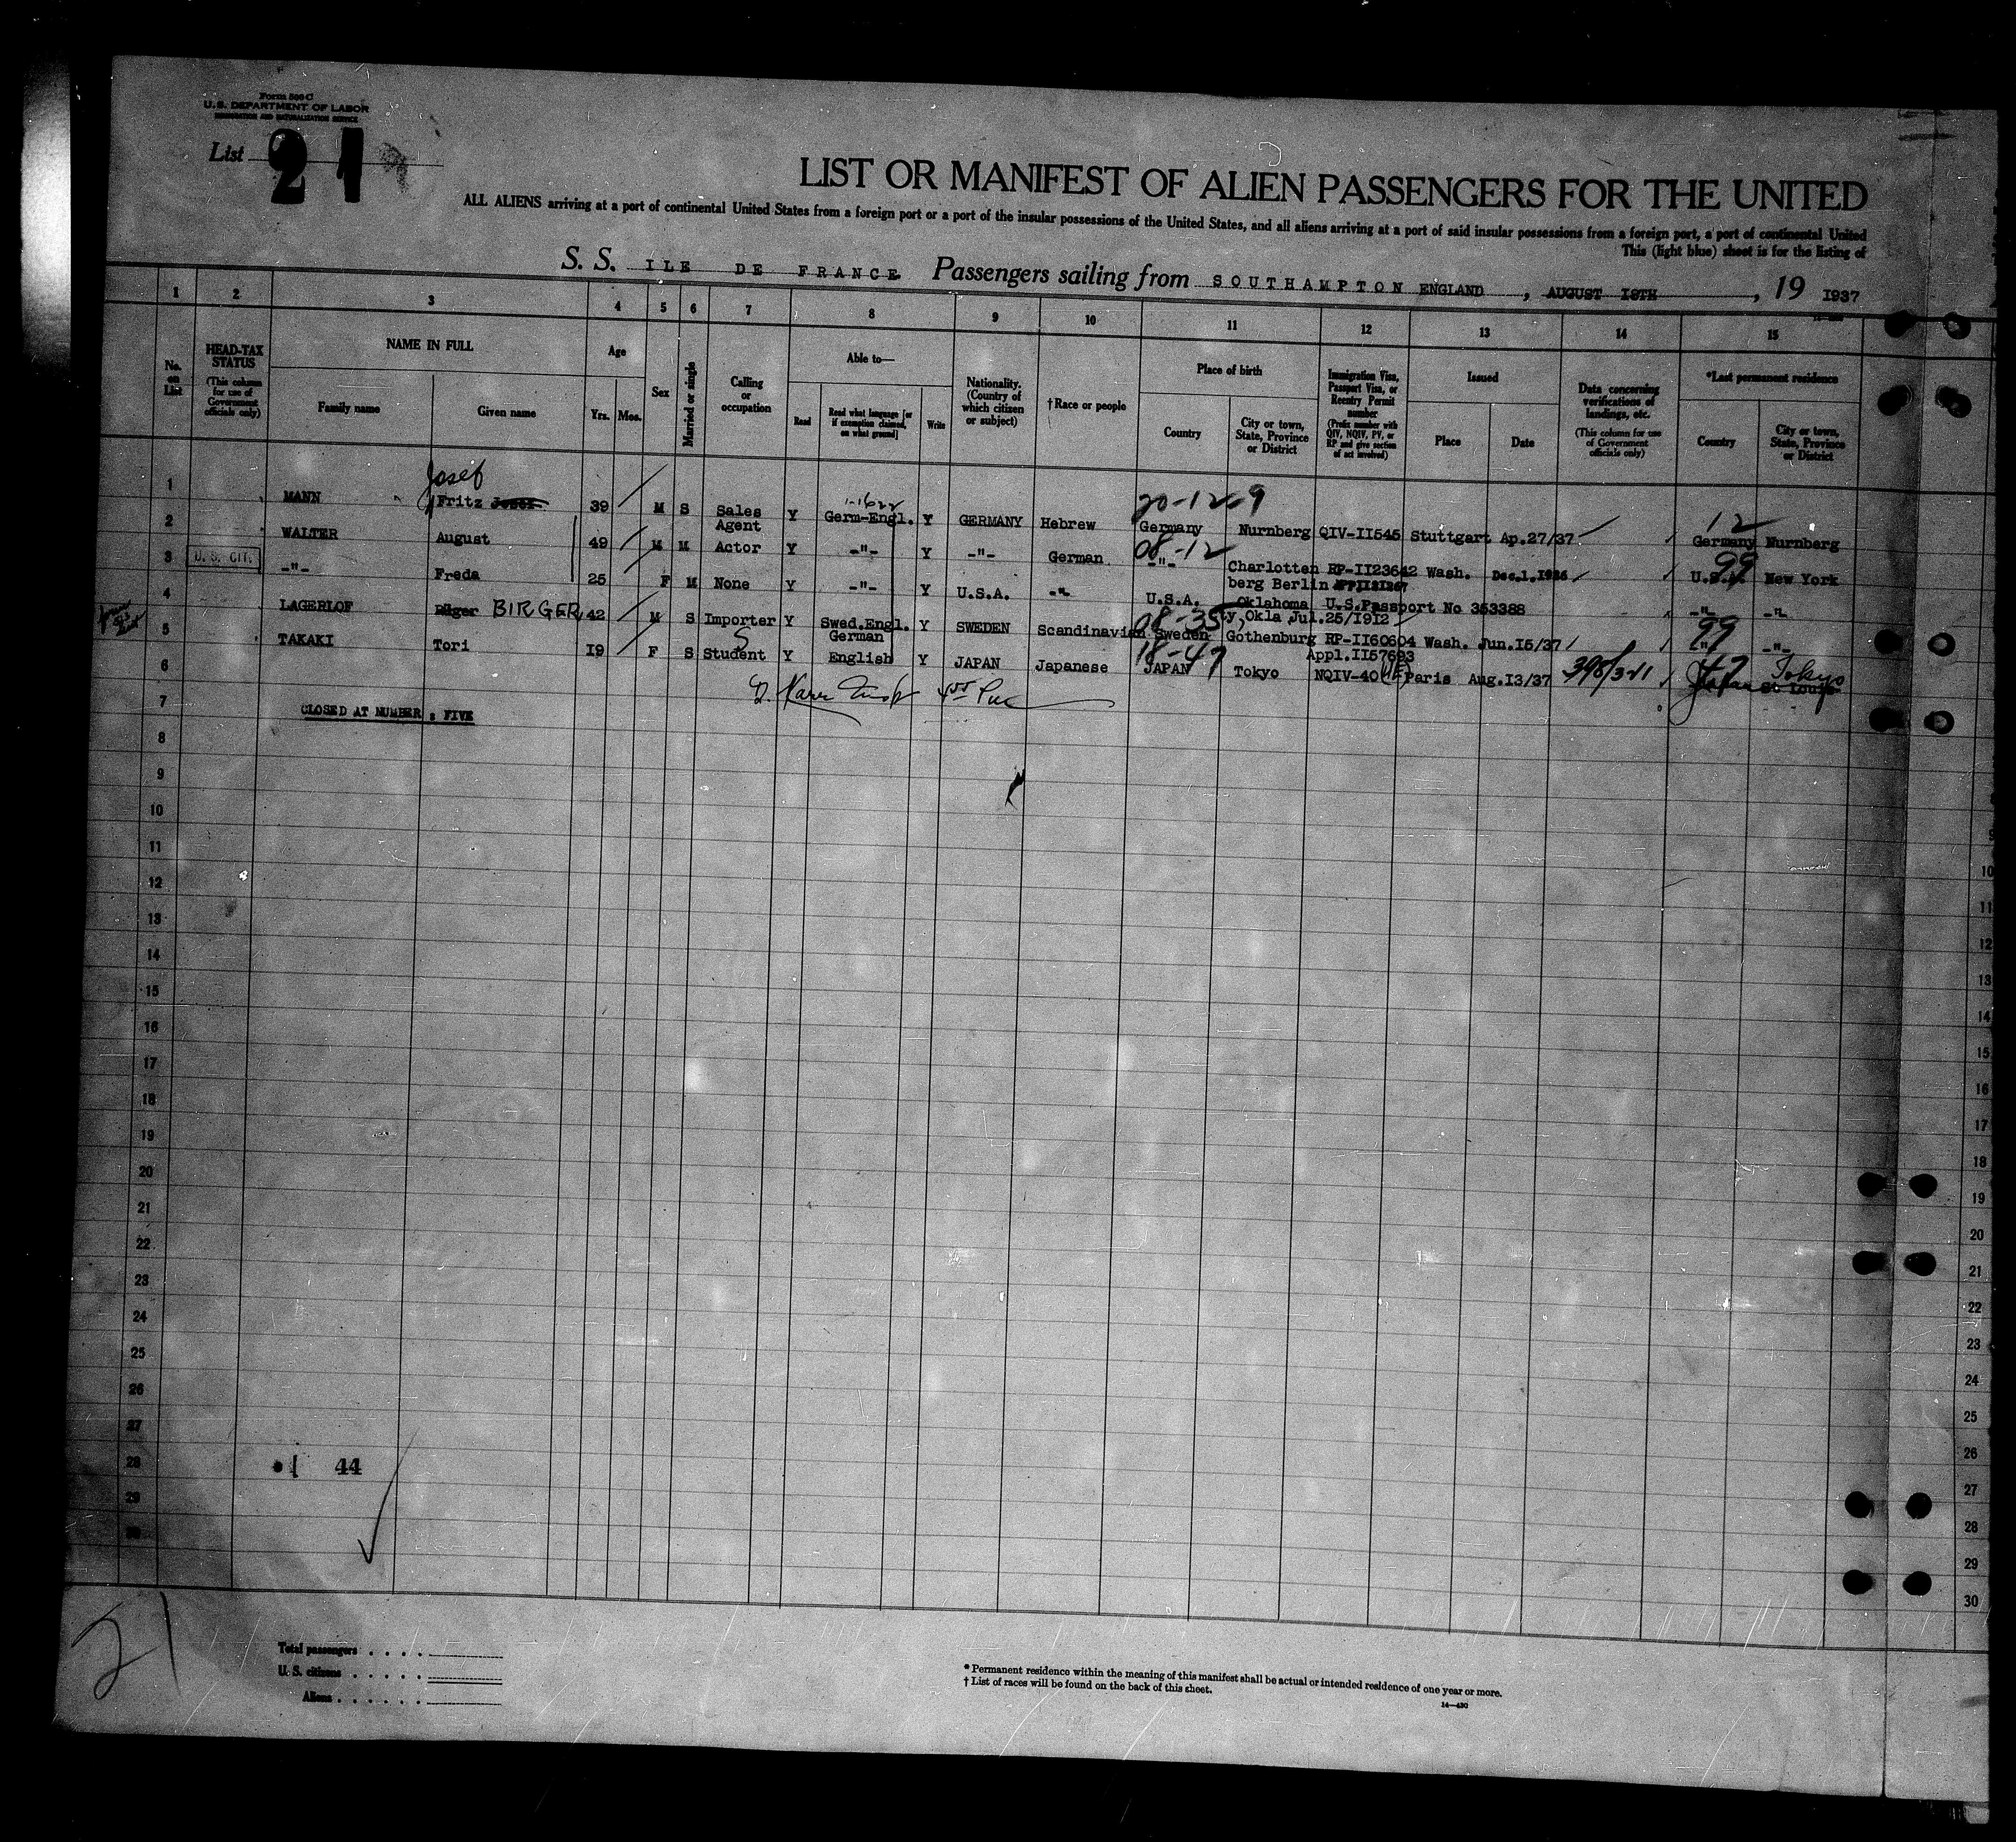 Form 500 C
U. S. DEPARTMENT OF LABOR
IMMIGRATION AND NATURALIZATION SERVICE
List 21
LIST OR MANIFEST OF ALIEN PASSENGERS FOR THE UNITED
ALL ALIENS arriving at a port of continental United States from a foreign port or a port of the insular possessions of the United States, and all aliens arriving at a port of said insular possessions from a foreign port, a port of continental United
This (light blue) sheet is for the listing of
S. S. ILE DE FRANCE Passengers sailing from SOUTHAMPTON ENGLAND, AUGUST 18TH, 19 1937
1 2 3 4 5 6 7 8 9 10 11 12 13 14 15
No. on List
HEAD-TAX STATUS (This column for use of Government officials only)
NAME IN FULL
Family name
Given name
Age
Yrs. Mos.
Sex
Married or single
Calling or occupation
Able to—
Read
Read what language [or if exemption claimed, on what ground]
Write
Nationality. (Country of which citizen or subject)
†Race or people
Place of birth
Country
City or town, State, Province or District
Immigration Visa, Passport Visa, or Reentry Permit number (Prefix number with QIV, NQIV, PV, or RP and give section of act involved)
Issued
Place
Date
Data concerning verifications of landings, etc. (This column for use of Government officials only)
*Last permanent residence
Country
City or town, State, Province or District
Josef 1-1622 20-12-9 12
1 MANN Fritz Josef 39 M S Sales Agent Y Germ-Engl. Y GERMANY Hebrew Germany Nurnberg QIV-II545 Stuttgart Ap.27/37 Germany Nurnberg
08-12 99
2 WALTER August 49 M M Actor Y -"- Y -"- German -"- Charlotten berg Berlin RP-II23642 Wash. Dec.1.1936 U.S.A. New York
3 U. S. CIT. -"- Freda 25 F M None Y -"- Y U.S.A. -"- U.S.A. Oklahoma y, Okla U.S.Passport No 353388 Jul.25/1912 -"- -"-
08-35 99
4 LAGERLOF BIRGER 42 M S Importer Y Swed.Engl. German Y SWEDEN Scandinavian Sweden Gothenburg RP-II60604 Wash. Jun.15/37 -"- -"-
Appl.II57693
18-47 47
5 TAKAKI Tori 19 F S Student Y English Y JAPAN Japanese JAPAN Tokyo NQIV-40 Paris Aug.13/37 Japan Tokyo St Louis
6
7 CLOSED AT NUMBER : FIVE
8
9
10
11
12
13
14
15
16
17
18
19
20
21
22
23
24
25
26
27
28 44
29
30
21
Total passengers
U. S. citizens
Aliens
* Permanent residence within the meaning of this manifest shall be actual or intended residence of one year or more.
† List of races will be found on the back of this sheet.
14—430